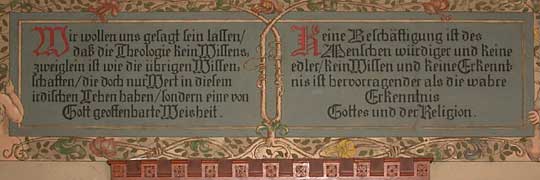 Wir wollen uns gesagt sein lassen/
daß die Theologie kein Wissens,
zweiglein ist wie die übrigen Wissen,
schaften/ die doch nur Wert in diesem
irdischen Leben haben/ sondern eine von
Gott geoffenbarte Weisheit.
Keine Beschäftigung ist des
Menschen würdiger und keine
edler/ kein Wissen und keine Erkennt,
nis ist hervorragender als die wahre
Erkenntnis
Gottes und der Religion.